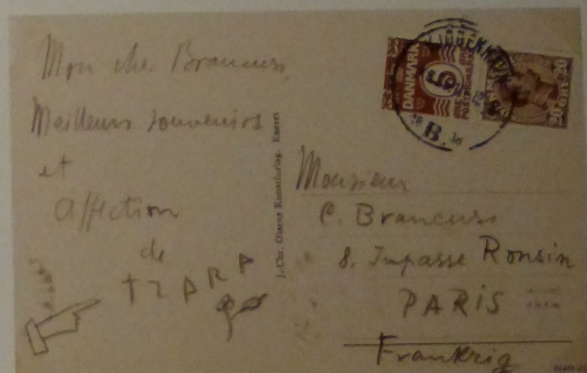 Mon cher Brancusi,
Meilleurs souvenirs
et
affection
de
TZARA
J. Chr. Olsens Kunstforlag. Eneret
DANMARK
5
ØRE
POSTFRIM
KJØBENHAVN
B.
20 ØRE 20
Monsieur
C. Brancusi
8. Impasse Ronsin
PARIS
Frankrig